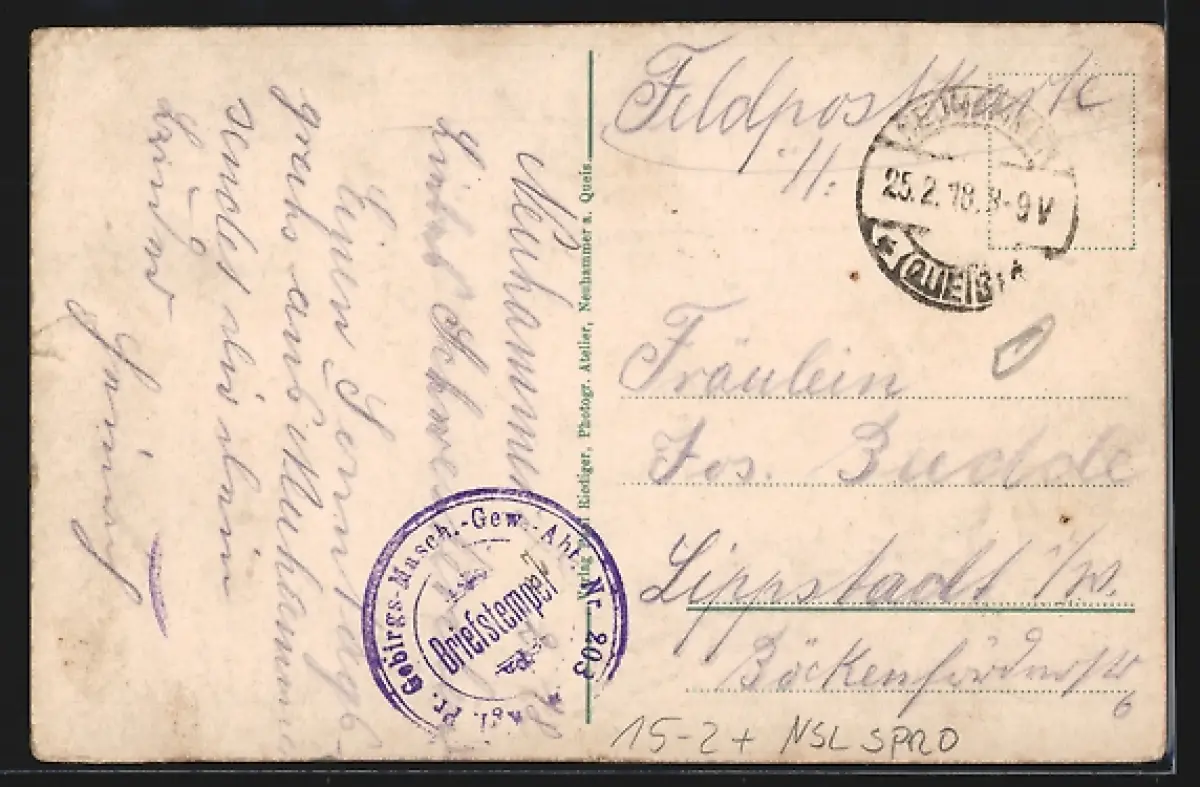 Neuhammer
Liebe Schwester
Einen Sonntags-
gruß aus Neuhammer
sendet dir dein
Bruder
Verlag Riediger, Photogr. Atelier, Neuhammer a. Queis.
Kgl. Pr. Gebirgs-Masch.-Gew.-Abt. Nr. 203
Briefstempel
Feldpostkarte
25.2.18. 8-9V
QUEIS
Fräulein
Jos.
Lippstadt i/W.
Böckenförderstr
6
15-2+ NSL SPRO